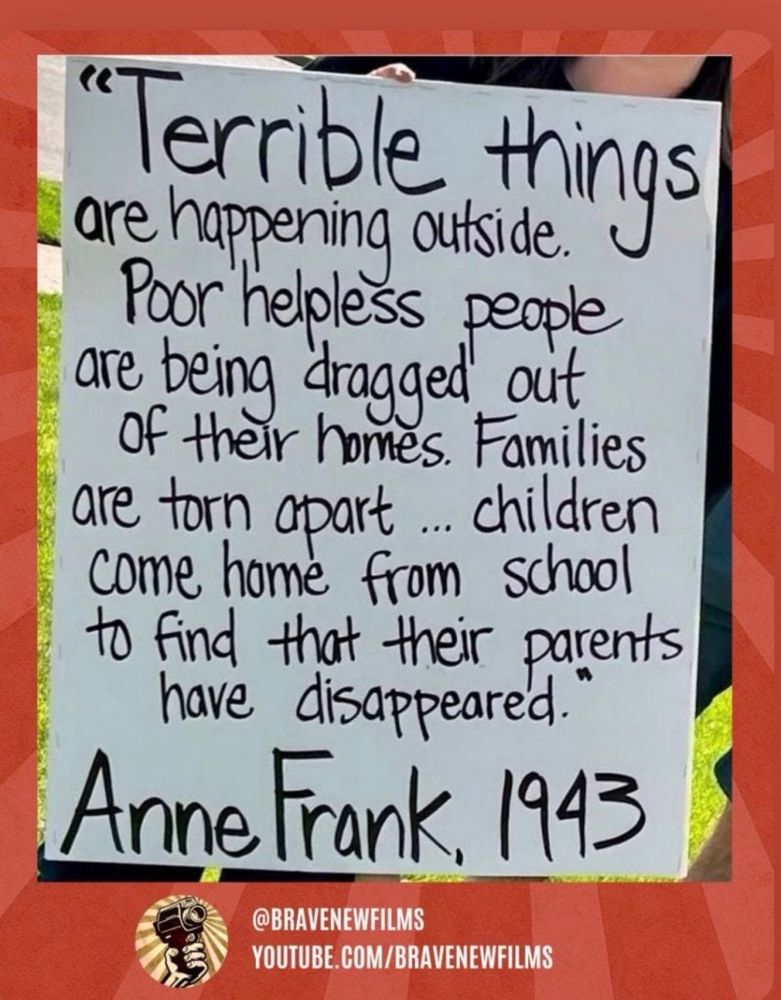 “Terrible things
are happening outside.
Poor helpless people
are being dragged out
of their homes. Families
are torn apart ... children
come home from school
to find that their parents
have disappeared."
Anne Frank, 1943
@BRAVENEWFILMS
YOUTUBE.COM/BRAVENEWFILMS